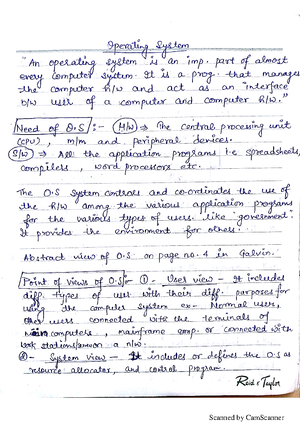 Operating System
"An operating system is an imp. part of almost
every computer system. It is a prog. that manages
the computer H/w and act as an "interface
b/w user of a computer and computer H/w."
Need of O.S :- (H/W) ⇒ The central processing unit
(CPU), m/m and peripheral devices.
(S/W) ⇒ All the application programs i.e spreadsheets,
compilers, word processors etc.
The O.S system controls and co-ordinates the use of
the H/w among the various application programs
for the various types of users. like "goverement".
It provides the enviroment for others.
Abstract view of O.S on page no. 4 in Galvin.
Point of views of O.S :- ①- User view - It includes
diff. types of user with their diff. purposes for
using the computer system ex- Normal users,
other users connected with the terminals of
computers, mainframe comp. or connected with
work stations/servers on a n/w.
②- System view - It includes or defines the O.S as
resource allocator, and control program.
Reid & Taylor
Scanned by CamScanner